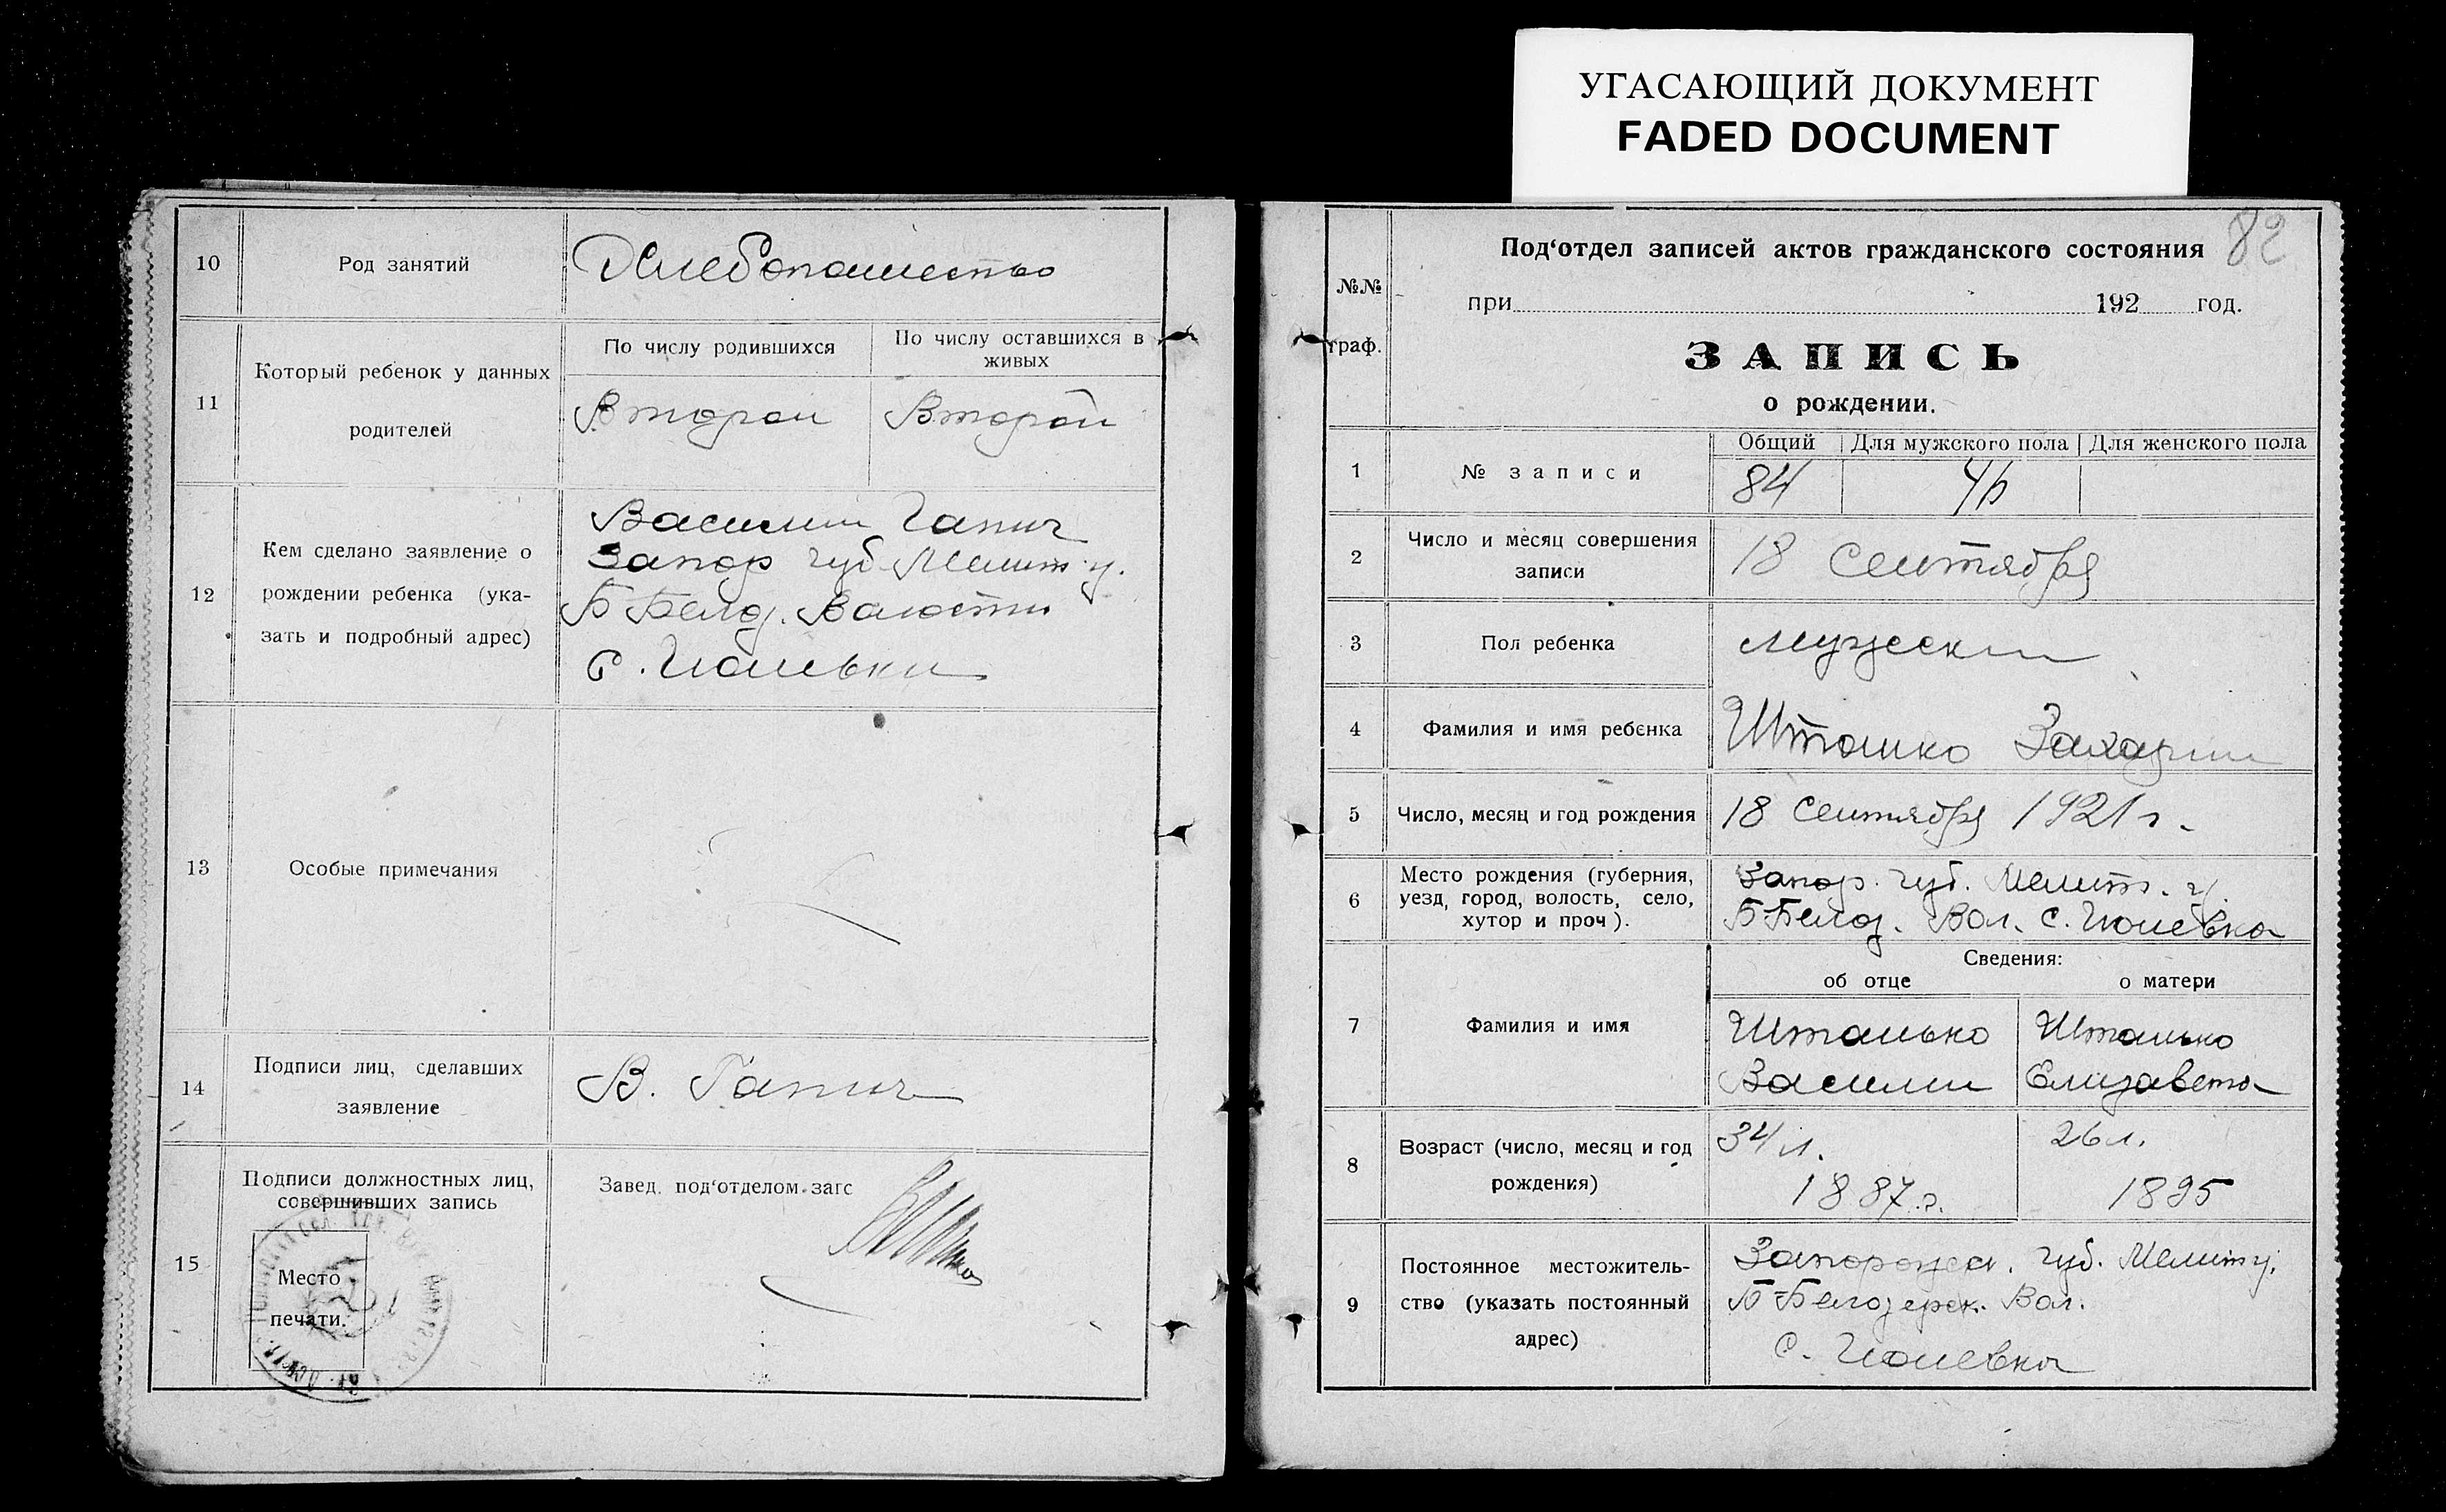 УГАСАЮЩИЙ ДОКУМЕНТ
FADED DOCUMENT
10
Род занятий
Хлебопашество
11
Который ребенок у данных
родителей
По числу родившихся
По числу оставшихся в
живых
Второй
Второй
12
Кем сделано заявление о
рождении ребенка (ука-
зать и подробный адрес)
Василий Гапич
Запор губ Мелит у.
Б Белоз. Волости
с.
13
Особые примечания
14
Подписи лиц, сделавших
заявление
В. Гапич
15
Подписи должностных лиц,
совершивших запись
Место
печати.
Завед. под‘отделом загс
82
№№
граф.
Под‘отдел записей актов гражданского состояния
при 192 год.
ЗАПИСЬ
о рождении.
1
№ записи
Общий
Для мужского пола
Для женского пола
84
2
Число и месяц совершения
записи
18 Сентября
3
Пол ребенка
мужеский
4
Фамилия и имя ребенка
Захарий
5
Число, месяц и год рождения
18 Сентября 1921 г.
6
Место рождения (губерния,
уезд, город, волость, село,
хутор и проч).
Запор. губ. Мелит. у.
Б Белоз. Вол. с.
Сведения:
об отце
о матери
7
Фамилия и имя
Василий
Елизавета
8
Возраст (число, месяц и год
рождения)
34 л.
1887 г.
26 л.
1895
9
Постоянное местожитель-
ство (указать постоянный
адрес)
Запорожск. губ. Мелит у.
Б-Белозерск. Вол.
с.